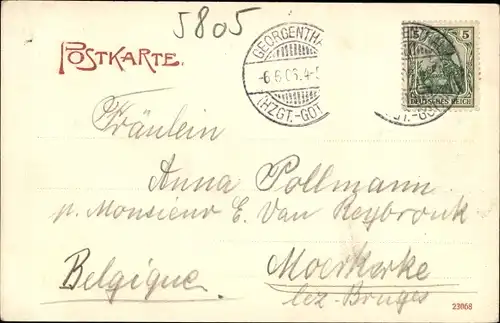 5805
POSTKARTE.
GEORGENTHA
-6.6.06.4-5
(HZGT.-GOT
5
DEUTSCHES REICH
Fräulein
Anna Pollmann
p. Monsieur E. Van Reybrouk
Belgique. Moerkerke
lez-Bruges
23068